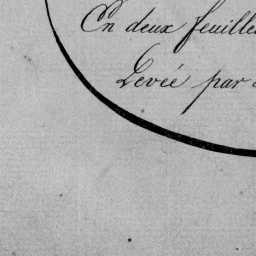 En deux feuille
Levée par